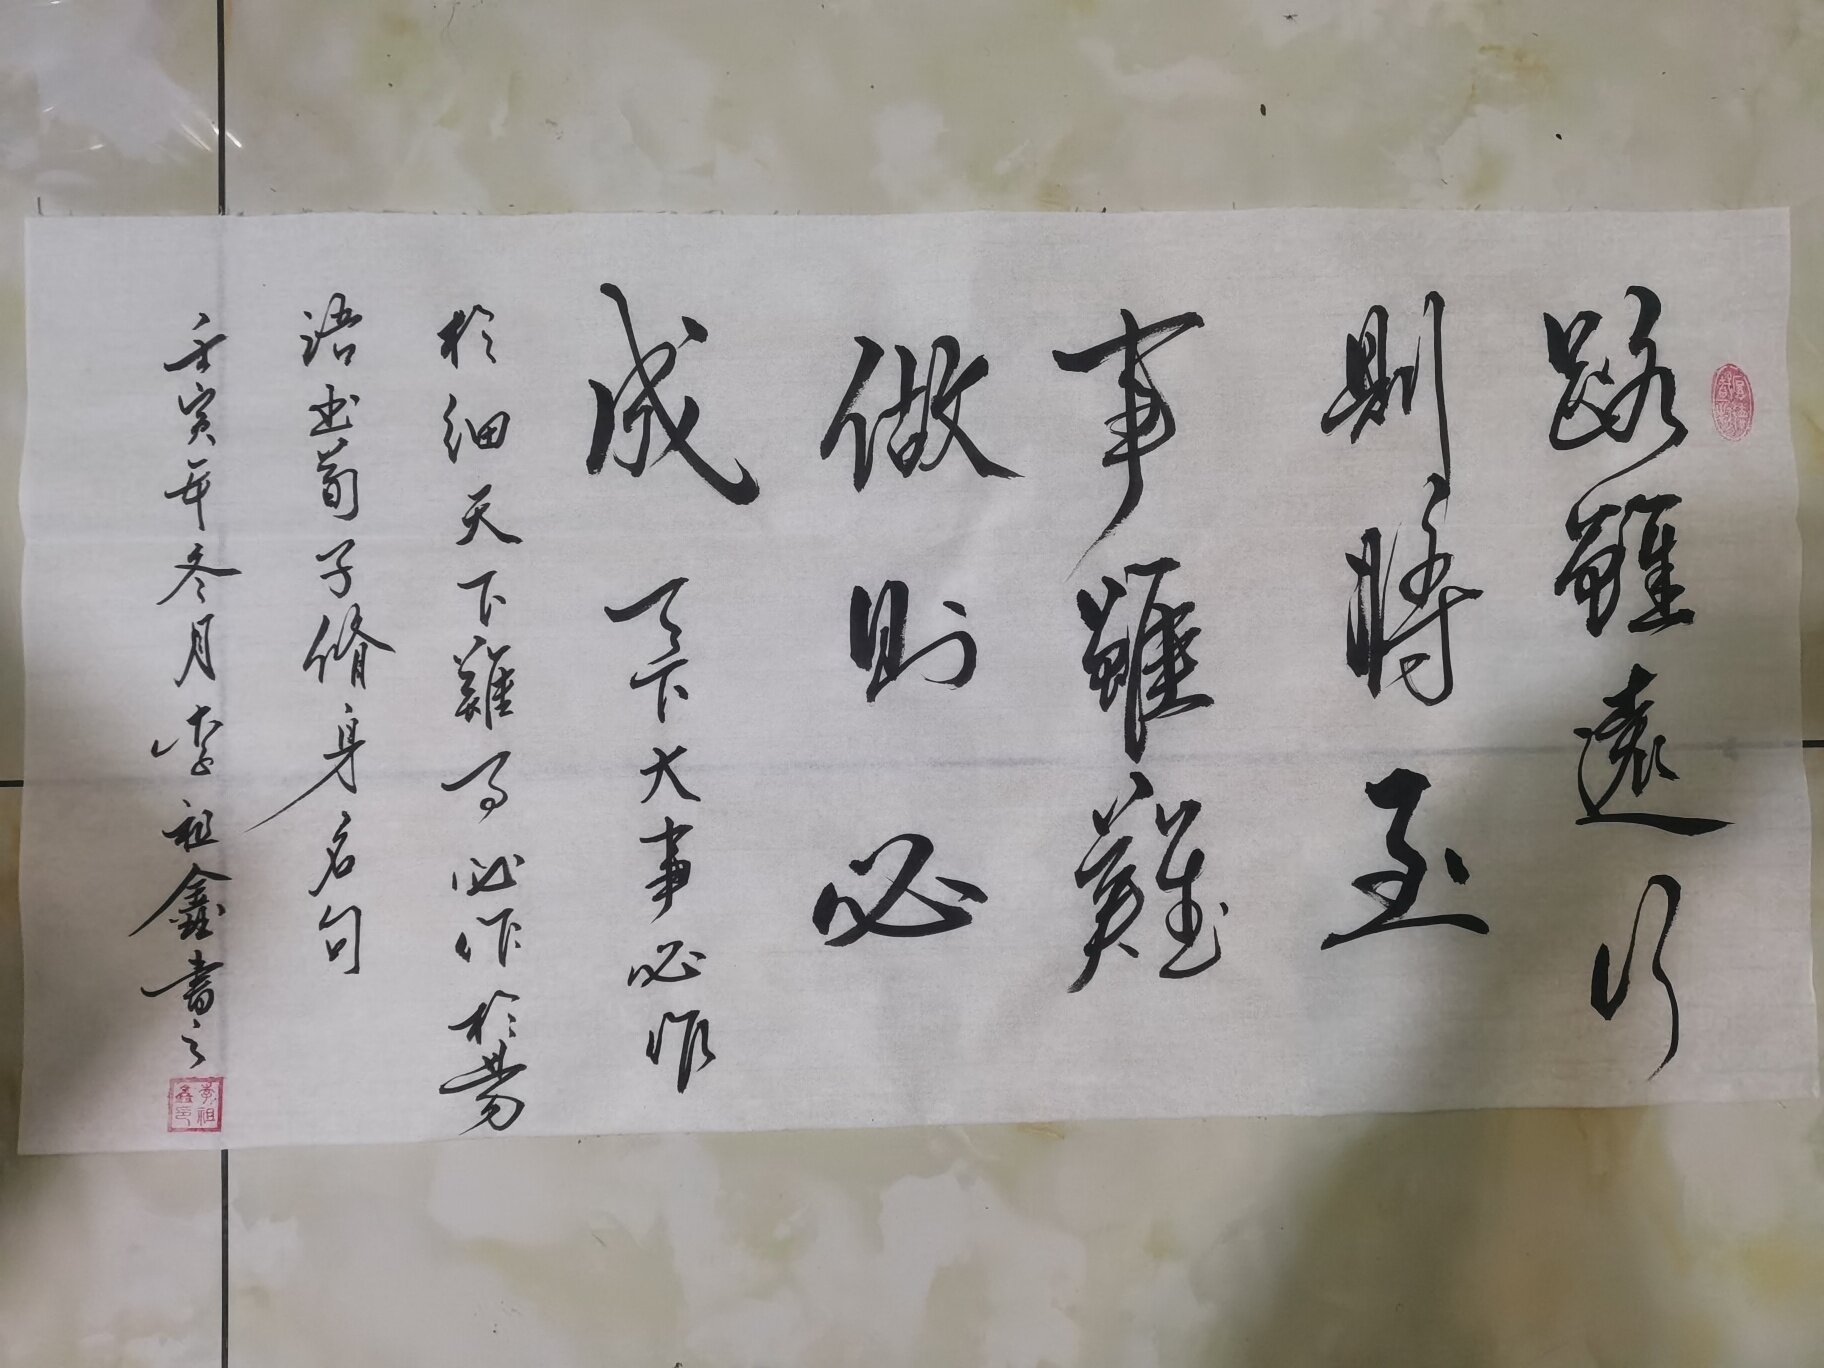 路雖遠行
則將至
事雖難
做則必
成
天下大事必作
於細天下難事必作於易
語出荀子脩身名句
壬寅年冬月李祖鑫書之
李祖鑫印